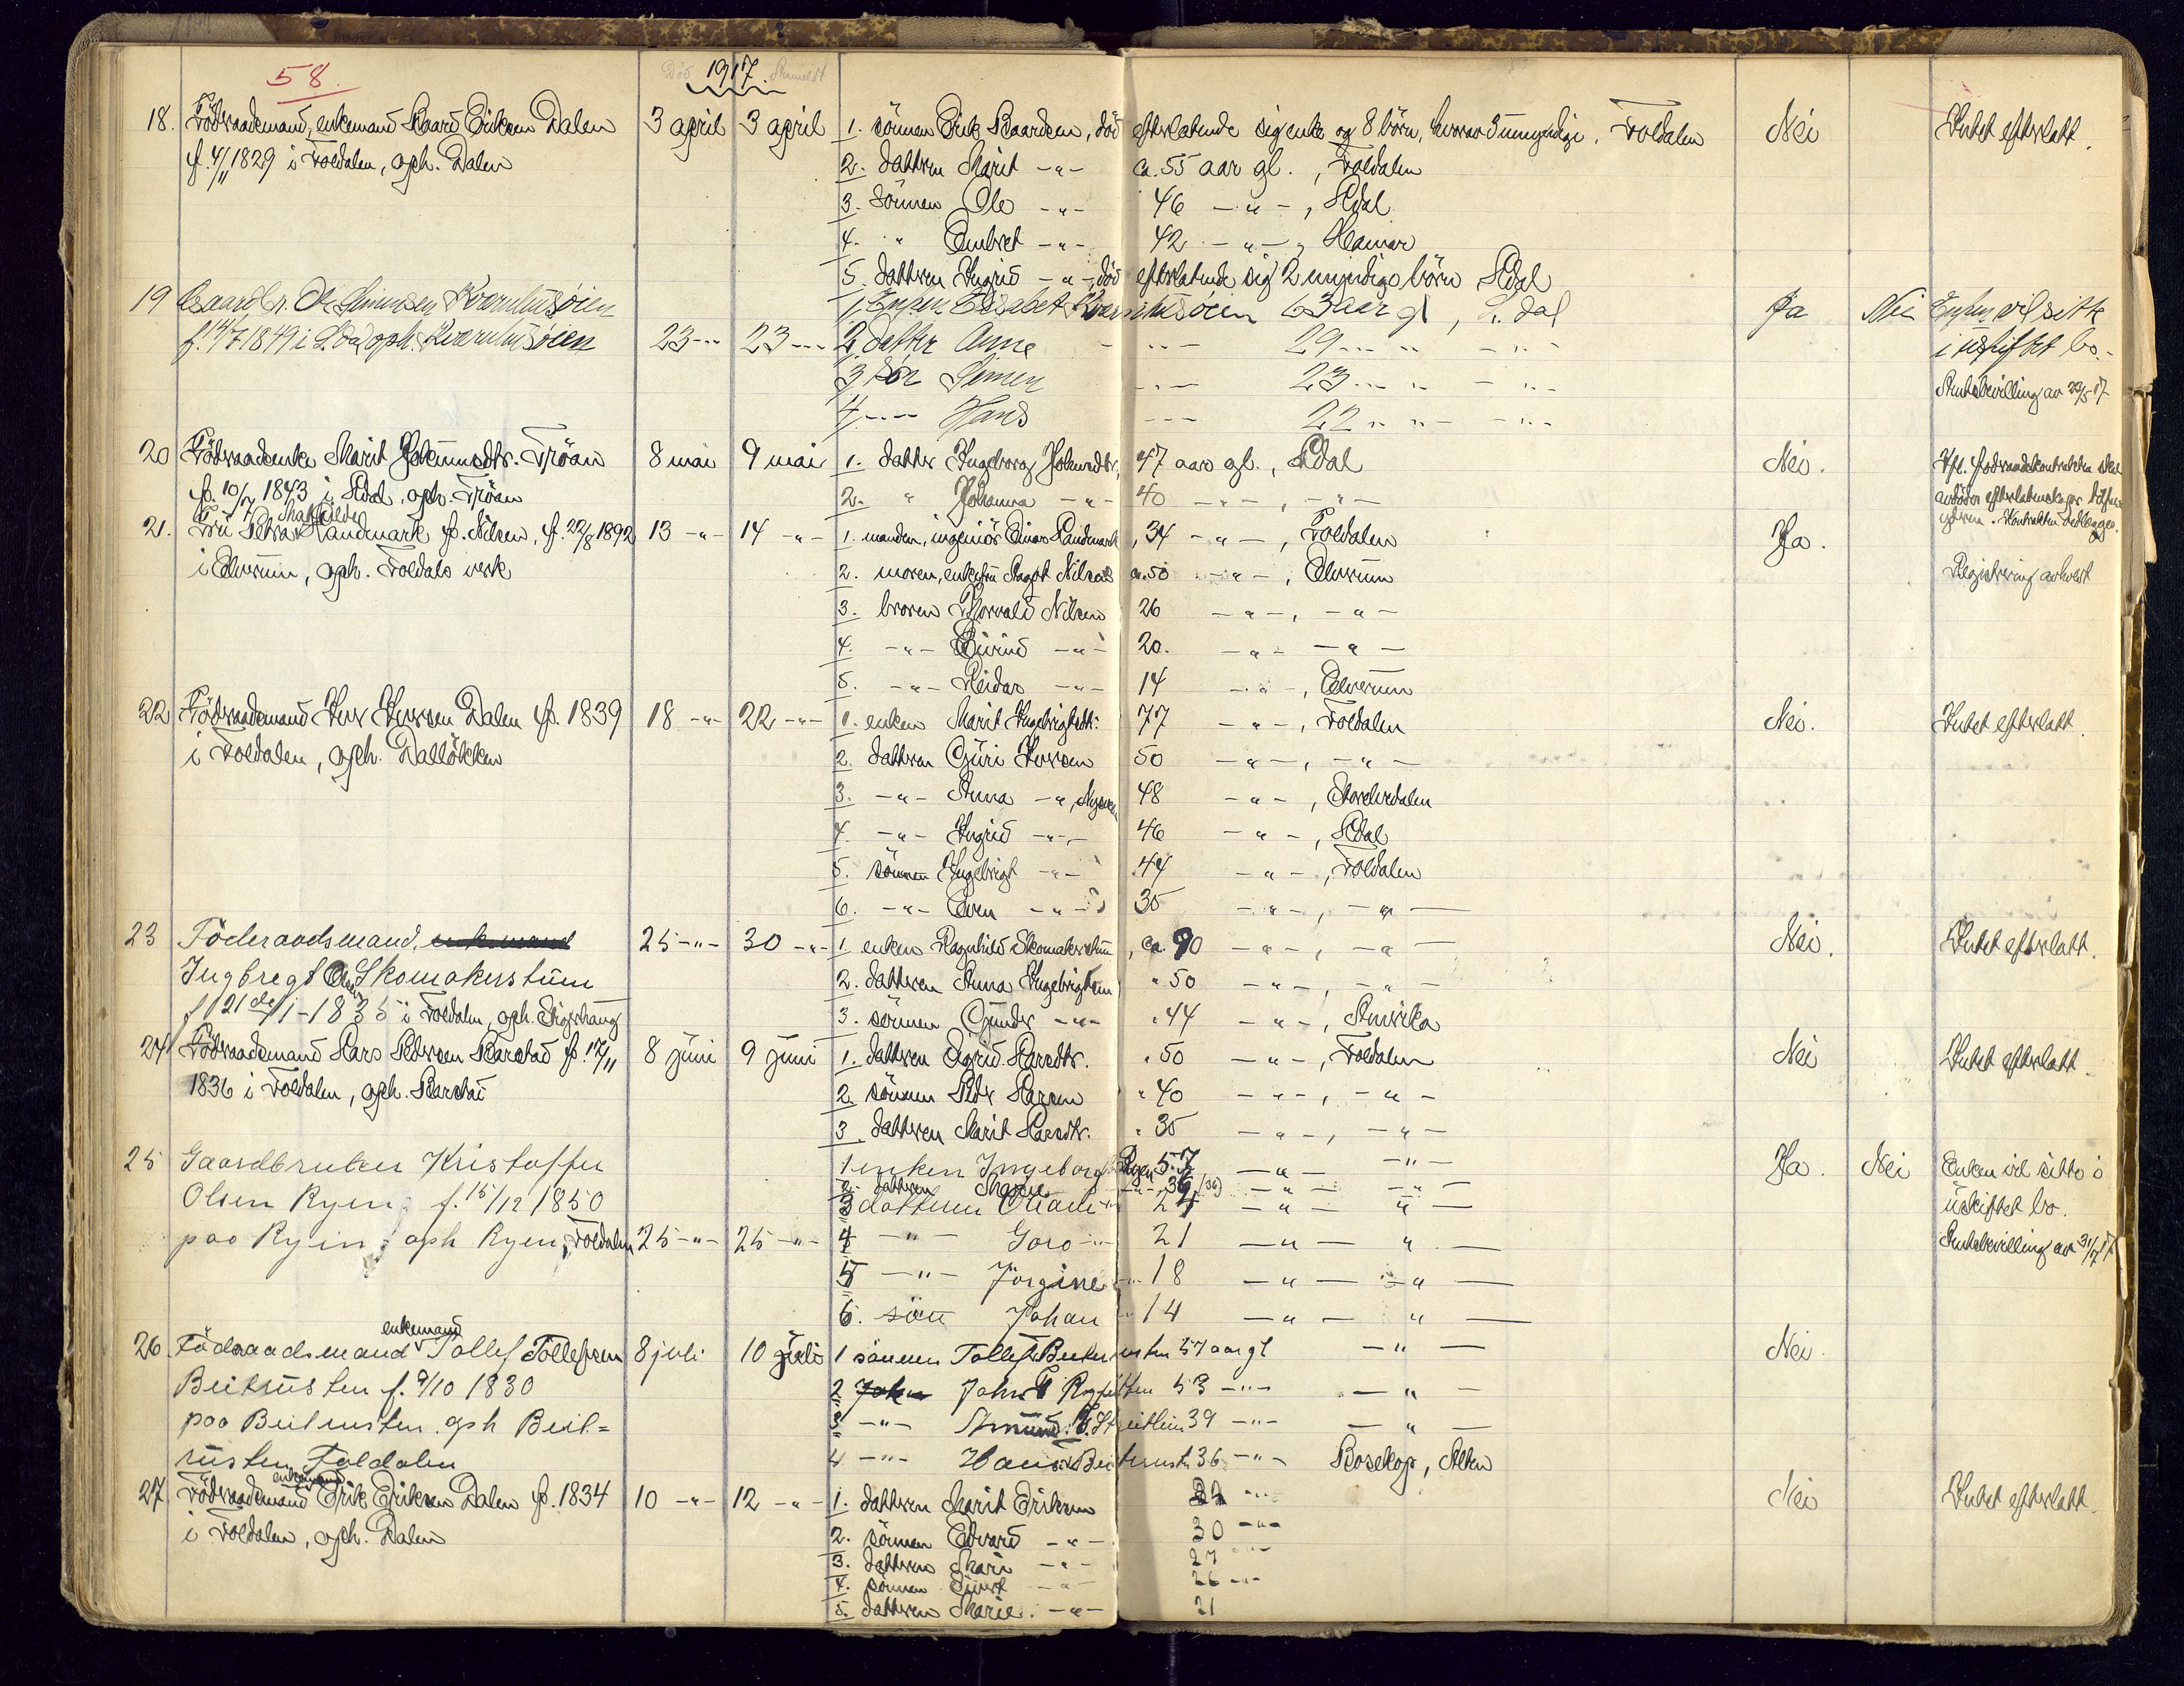 58.
Död 1917 Anmeldt
18. Föderaadsmand, enkemand Baard Eriksen Dalen 3 april 3 april 1. sönnen Erik Baardsen, död efterlatende sig enke og 8 börn, hvorav 3 umyndige, Foldalen Nei Intet efterlatt.
f. 4/11 1829 i Foldalen, oph. Dalen 2. datteren Marit -"- ca. 55 aar gl., Foldalen
3. Sönnen Ole -"- 46 -"-, Aldal
4. " Embret -"- 42 -"-, Hamar
5. datteren Ingrid -"-, död efterlatende sig 2 myndige börn Aldal
19 Gaardbr. Ole Simensen Kvernhusöien 1, Enken Elisabet Kvernhusöien 63 aar gl, L. dal Ja Nei Enken vil sitte
f. 14/7 1849 i L.dal oph. Kvernhusöien 23 --- 23 --- 2, datter Anne --- 29 --- " - " - i uskiftet bo.
3, Sön Simen --- 23 --- " - " - Amtsbevilling av 22/5 17
4, --- Hans --- 22 " " - " -
20 Föderaadsenke Marit Johannesdtr. Tröan 8 mai 9 mai 1. datter Ingeborg 47 aar gl., Aldal Nei.
f. 10/7 1843 i Aldal, oph. Tröan 2. " Johanna -"- 40 -"-, -"-
Mathilde
21. Fru Petra Sandmark f. Nilsen, f. 22/8 1892 13 -"- 14 -"- 1. manden, ingeniör Einar Sandmark, 34 -"-, Foldalen Ja.
i Elverum, oph. Foldals verk 2. moren, enkefru Nilsen ca. 50 -"-, Elverum Registrering avholdt
3. broren Thorvald Nilsen 26 -"-, -"-
4. -"- Eivind -"- 20. -"- -"-
5. -"- Reidar -"- 14 -"-, Elverum
22 Föderaadsmand Iver Iversen Dalen f. 1839 18 -"- 22 -"- 1. enken Marit Ingebrigtsdtr. 77 -"-, Foldalen Nei. Intet efterlatt.
i Foldalen, oph. Dallökken 2. datteren Guri Iversen 50 -"-, -"-
3. -"- Anna -"-, 48 -"-, Storelvedalen
4. -"- Ingrid -"- 46 -"-, Aldal
5. sönnen Ingebrigt -"- 44 -"-, Foldalen
6. -"- Even -"- 35 -"-, -"-
23 Föderaadsmand, enkemand 25 -"- 30 -"- 1. enken Ragnhild Skomakerstuen, ca. 90 -"-, -"- Nei. Intet efterlatt.
Ingbregt Olsen Skomakerstuen 2. datteren Anna Ingebrigtsen " 50 -"-, -"-
f 21de/1-1835 i Foldalen, oph. 3. sönnen Gunder -"- " 44 -"-, Amerika
24 Föderaadsmand Lars Pedersen Barstad f. 17/11 8 juni 9 juni 1. datteren Sigrid Larsdtr. " 50 -"-, Foldalen Nei Intet efterlatt.
1836 i Foldalen, oph. Barstad 2. sönnen Peder Larsen " 40 -"-, -"-
3. datteren Marit Larsdtr. " 35 -"-, -"-
25 Gaardbruker Kristoffer 1 enken Ingeborg Ryen 57 -"- -"- Ja. Nei Enken vil sitte i
2. datteren Marie -"- 36 (36) -"- -"-
Olsen Ryen f. 15/12 1850 3 datteren 24 -"- " - uskiftet bo.
paa Ryen, oph Ryen, Foldalen 25 -"- 25 -"- 4 -"- Goro -"- 21 -"- " - Amtsbevilling av 31/7 17
5 -"- Jörgine 18 -"- -"-
6. sön Johan 14 -"- " -
enkemand
26. Föderaadsmand Tollef Tollefsen 8 juli 10 juli 1 sönnen Tollef Beitrusten 57 aar gl -"- Nei.
Beitrusten f. 9/10 1830 2. John John T 53 -"- -"-
paa Beitrusten. oph Beit= 3 -"- Amund T. 39 -"- -"-
rusten Foldalen 4 -"- Hans Beitrust. 36 -"- Bosekop, Alten
enkemand
27. Föderaadsmand Erik Eriksen Dalen f. 1834 10 -"- 12 -"- 1. datteren Marit Eriksen -"- Nei Intet efterlatt.
i Foldalen, oph. Dalen 2. sönnen Edvard -"- 30 -"-
3. datteren Mari -"- 27 -"-
4. sönnen -"- 26 -"-
5. datteren Marie. -"- 21